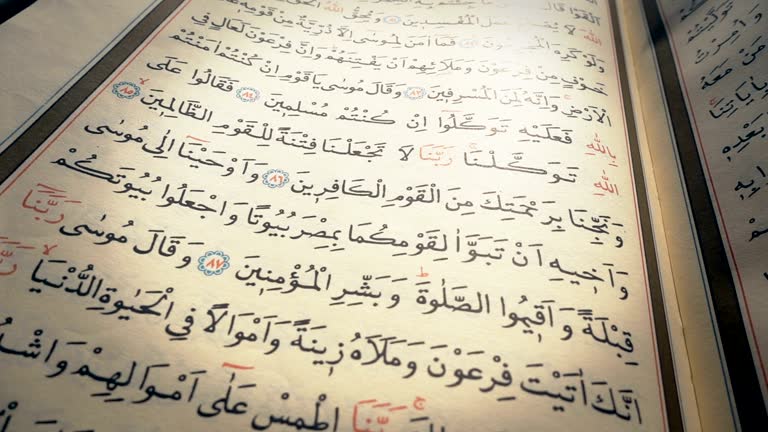 تَوَلَّيْتُمْ
وَاُمِرْتُ
مَنْ مَعَهُ
بِاٰيَاتِنَا
بَعْدِهِ
بِهِ
اَلْقَوْا قَالَ
اللّٰهَ لَا يُصْلِحُ عَمَلَ الْمُفْسِدِينَ ٨١ وَيُحِقُّ اللّٰهُ الْحَقَّ
وَلَوْ كَرِهَ الْمُجْرِمُونَ ٨٢ فَمَا اٰمَنَ لِمُوسٰى اِلَّا ذُرِّيَّةٌ مِنْ قَوْمِهِ
خَوْفٍ مِنْ فِرْعَوْنَ وَمَلَائِهِمْ اَنْ يَفْتِنَهُمْ وَاِنَّ فِرْعَوْنَ لَعَالٍ فِي
الْاَرْضِ وَاِنَّهُ لَمِنَ الْمُسْرِفِينَ ٨٣ وَقَالَ مُوسٰى يَا قَوْمِ اِنْ كُنْتُمْ اٰمَنْتُمْ
بِاللّٰهِ فَعَلَيْهِ تَوَكَّلُوا اِنْ كُنْتُمْ مُسْلِمِينَ ٨٤ فَقَالُوا عَلَى
اللّٰهِ تَوَكَّلْنَا رَبَّنَا لَا تَجْعَلْنَا فِتْنَةً لِلْقَوْمِ الظَّالِمِينَ ٨٥
وَنَجِّنَا بِرَحْمَتِكَ مِنَ الْقَوْمِ الْكَافِرِينَ ٨٦ وَاَوْحَيْنَا اِلٰى مُوسٰى
وَاَخِيهِ اَنْ تَبَوَّاٰ لِقَوْمِكُمَا بِمِصْرَ بُيُوتًا وَاجْعَلُوا بُيُوتَكُمْ
قِبْلَةً وَاَقِيمُوا الصَّلٰوةَ وَبَشِّرِ الْمُؤْمِنِينَ ٨٧ وَقَالَ مُوسٰى رَبَّنَا
اِنَّكَ اٰتَيْتَ فِرْعَوْنَ وَمَلَاَهُ زِينَةً وَاَمْوَالًا فِي الْحَيٰوةِ الدُّنْيَا رَبَّنَا
رَبَّنَا اطْمِسْ عَلٰى اَمْوَالِهِمْ وَاشْدُدْ